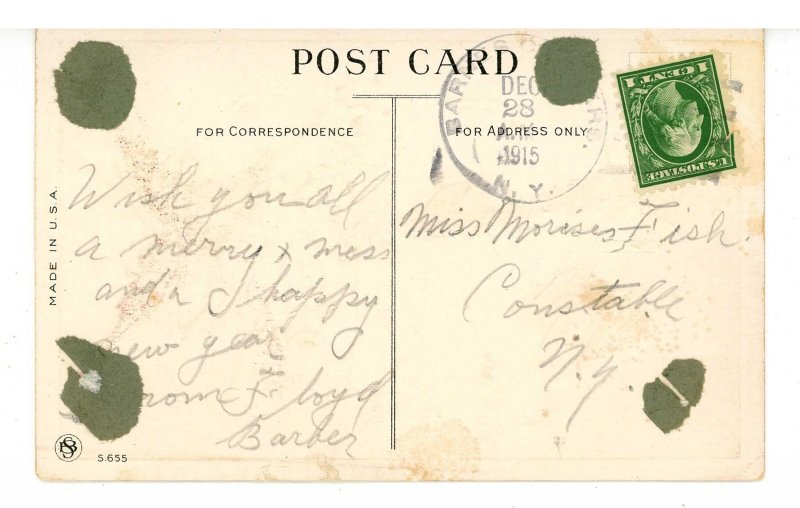 POST CARD
FOR CORRESPONDENCE
FOR ADDRESS ONLY
DEC
28
A.M.
1915
N.Y.
1 CENT 1
U.S. POSTAGE
MADE IN U.S.A.
Wish you all
a merry x mess
and a happy
new year
from Floyd
Barber
Miss Fish.
Constable
N.Y.
S.655